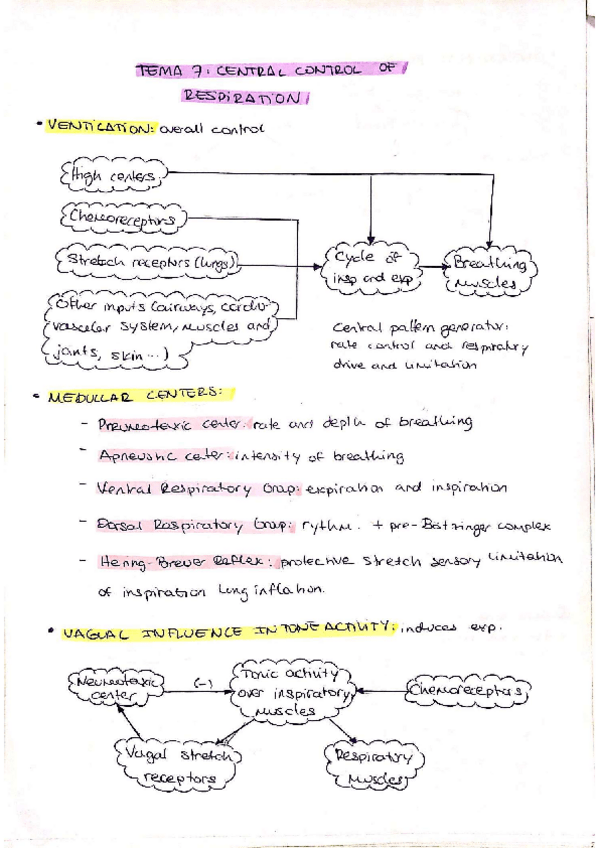 TEMA 7: CENTRAL CONTROL OF
RESPIRATION
• VENTICATION: overall control
High centers
Chemoreceptors
Stretch receptors (lungs)
Other inputs (airways, cardio-
vascular system, muscles and
joints, skin...)
Cycle of
insp and exp
Breathing
muscles
Central pattern generator:
rate control and respiratory
drive and limitation
• MEDULLAR CENTERS:
- Pneumotaxic center: rate and depth of breathing
- Apneustic center: intensity of breathing
- Ventral Respiratory Group: expiration and inspiration
- Dorsal Respiratory Group: rythm. + pre-Botzinger complex
- Hering-Brever Reflex: protective stretch sensory limitation
of inspiration lung inflation.
• VAGUAL INFLUENCE IN TONE ACTIVITY: induces exp.
Neumotaxic
center
(-)
Tonic activity
over inspiratory
muscles
Chemoreceptors
Vagal stretch
receptors
Respiratory
muscles